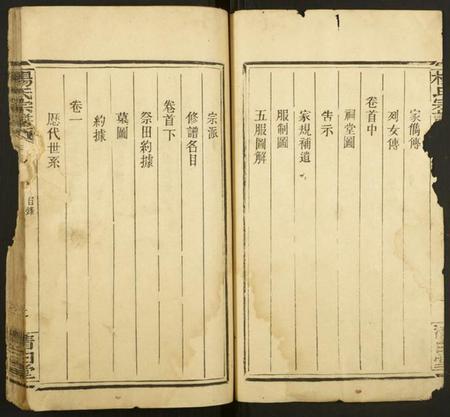 家傳
列女傳
卷首中
祠堂圖
告示
家規補遺
服制圖
五服圖解
宗派
修譜名目
卷首下
祭田約據
墓圖
約據
卷一
歷代世系
楊氏宗譜
目錄
清白堂